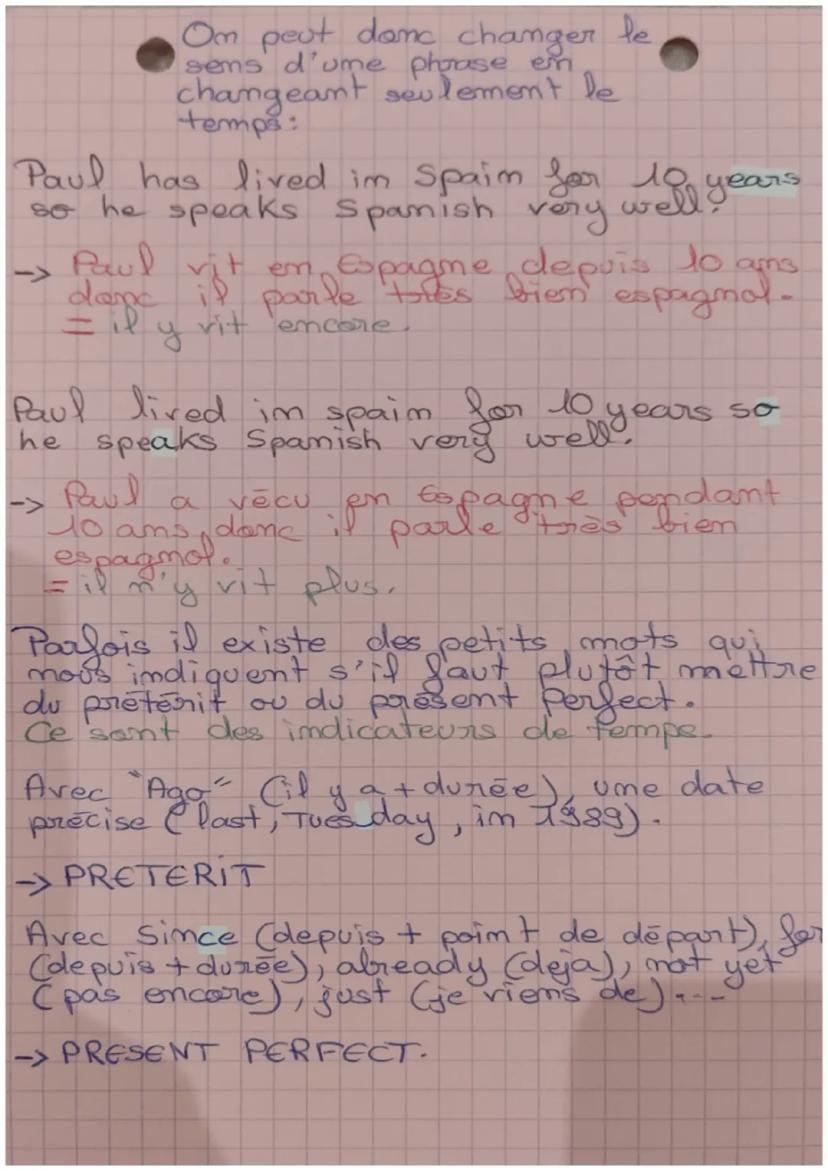 On peut donc changer le
sens d'une phrase en
changeant seulement le
temps:
Paul has lived in Spain for 10 years
so he speaks Spanish very well.
-> Paul vit en Espagne depuis 10 ans
donc il parle très bien espagnol.
= il y vit encore.
Paul lived in spain for 10 years so
he speaks Spanish very well.
-> Paul a vécu en Espagne pendant
10 ans, donc il parle très bien
espagnol.
= il n'y vit plus.
Parfois il existe des petits mots qui
nous indiquent s'il faut plutôt mettre
du prétérit ou du présent perfect.
Ce sont des indicateurs de temps.
Avec "Ago" (il y a + durée), une date
précise (last, Tuesday, in 1989).
-> PRETERIT
Avec Since (depuis + point de départ), for
(depuis + durée), already (deja), not yet
(pas encore), just (je viens de)...
-> PRESENT PERFECT.